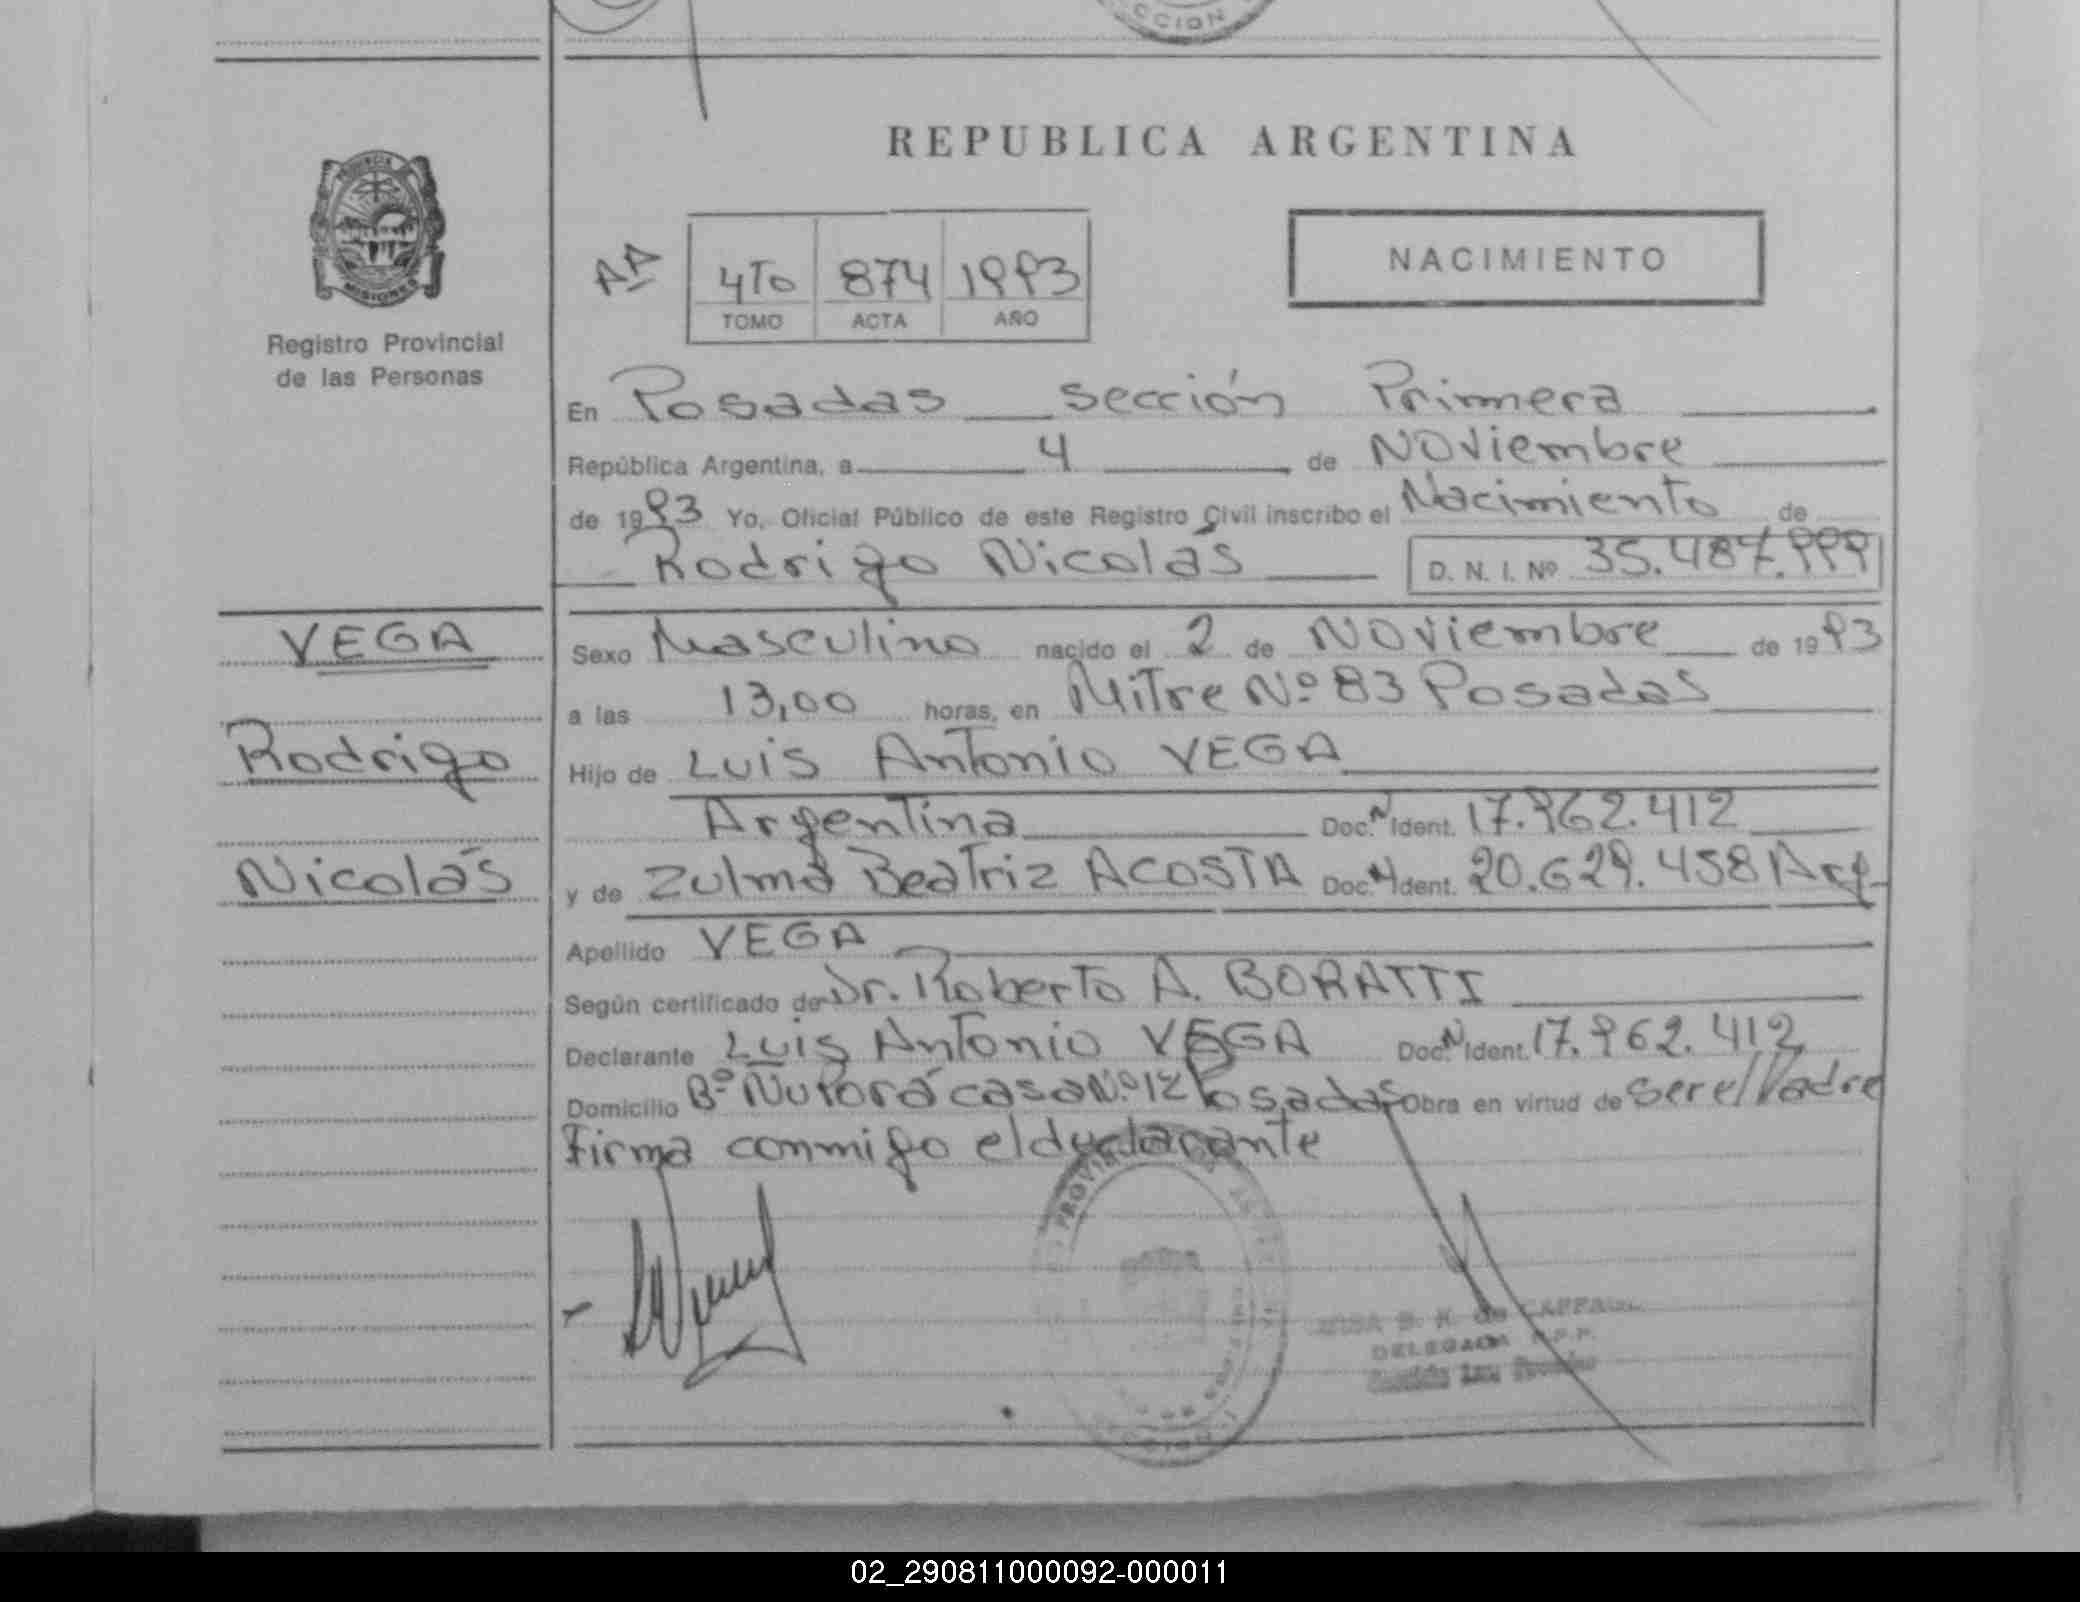 CCION
REPUBLICA ARGENTINA
PROVINCIA
MISIONES
Registro Provincial
de las Personas
4To 874 1993
TOMO ACTA AÑO
NACIMIENTO
En Posadas sección Primera
República Argentina, a 4 de Noviembre
de 1993 Yo, Oficial Público de este Registro Civil inscribo el Nacimiento de
Rodrigo Nicolás D. N. I. Nº 35.487.999
VEGA
Rodrigo
Nicolás
Sexo Masculino nacido el 2 de Noviembre de 1993
a las 13,00 horas, en Mitre Nº 83 Posadas
Hijo de Luis Antonio VEGA
Argentina Doc. N Ident. 17.962.412
y de Zulma Beatriz ACOSTA Doc. N Ident. 20.629.458 Arg.
Apellido VEGA
Según certificado de Dr. Roberto A. BORATTI
Declarante Luis Antonio VEGA Doc. N Ident. 17.962.412
Domicilio Bº casa Nº 12 Posadas Obra en virtud de ser el Padre
Firma conmigo el declarante
DELEGADA R.P.P.
02_290811000092-000011